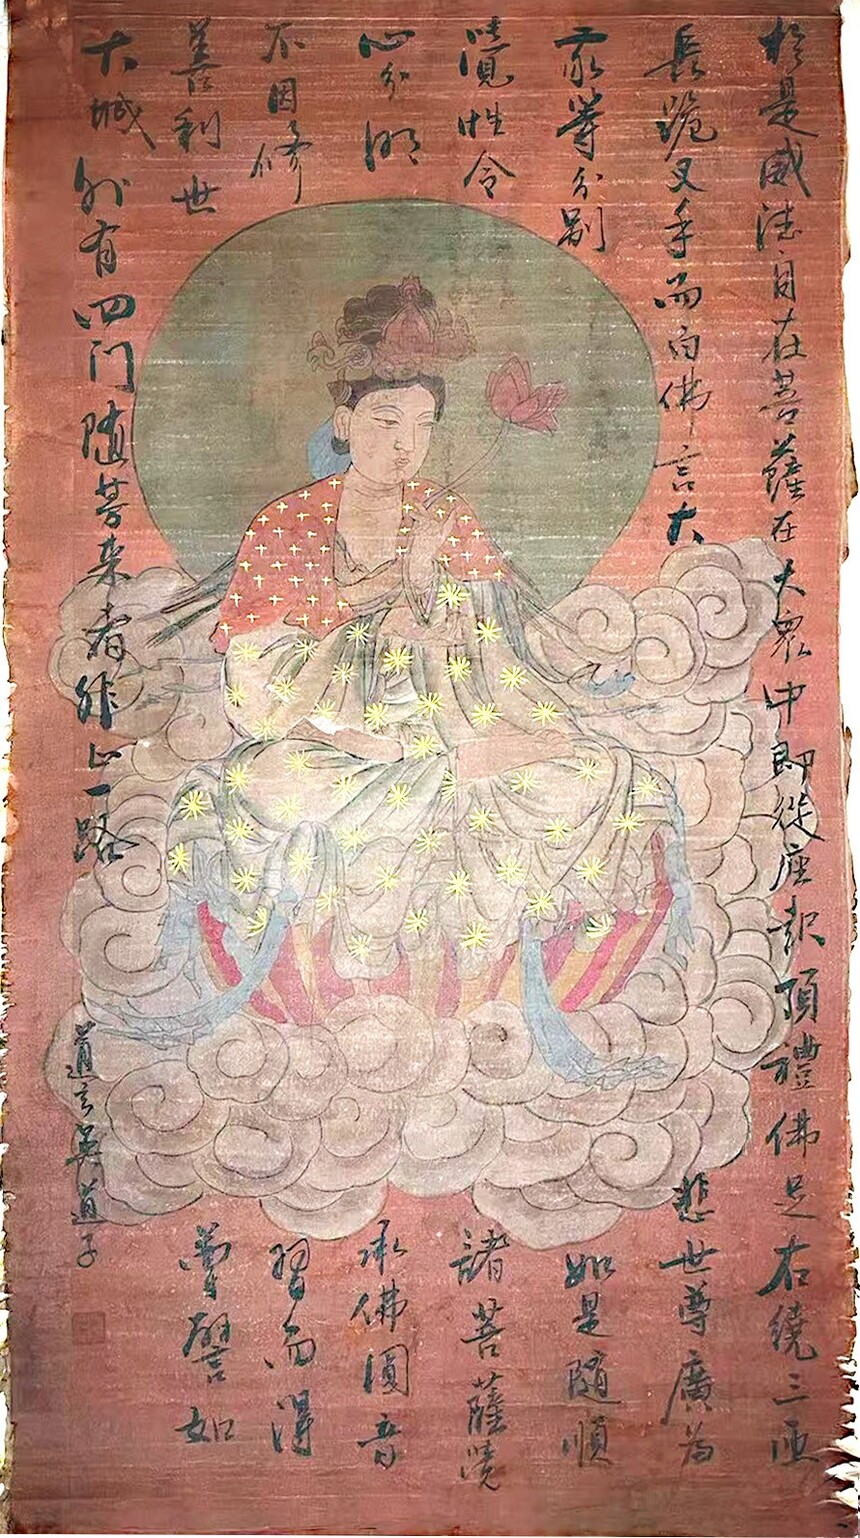 於是威德自在菩薩在大眾中即從座起頂禮佛足右繞三匝
長跪叉手而白佛言大悲世尊廣為
我等分別如是隨順
覺性令諸菩薩覺
心光明承佛圓音
不因修習而得
善利世尊譬如
大城外有四门随方来者非止一路
道玄吴道子